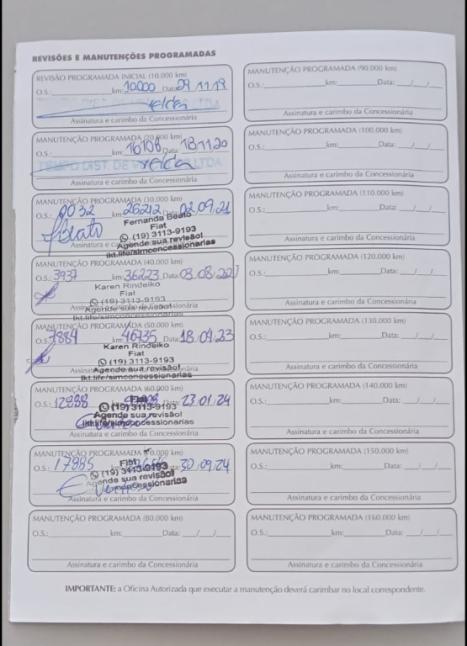 REVISÕES E MANUTENÇÕES PROGRAMADAS
REVISÃO PROGRAMADA INICIAL (10.000 km)
O.S.: km: 10000 Data: 09 11 19
Assinatura e carimbo da Concessionária
MANUTENÇÃO PROGRAMADA (20.000 km)
O.S.: km: 16106 Data: 18 11 20
DIST. DE LTDA
Assinatura e carimbo da Concessionária
MANUTENÇÃO PROGRAMADA (30.000 km)
O.S.: 9032 km: 26212 Data: 02.09.21
Fernanda Beato
Fiat
(19) 3113-9193
Agende sua revisão!
fkt.life/simconcessionarias
MANUTENÇÃO PROGRAMADA (40.000 km)
O.S.: 3937 km: 36223 Data: 03.08.22
Karen Rindeiko
Fiat
(19) 3113-9193
Agende sua revisão!
fkt.life/simconcessionarias
MANUTENÇÃO PROGRAMADA (50.000 km)
O.S.: 7884 km: 46735 Data: 18.04.23
Karen Rindeiko
Fiat
(19) 3113-9193
Agende sua revisão!
fkt.life/simconcessionarias
MANUTENÇÃO PROGRAMADA (60.000 km)
O.S.: 12888 23.01.24
Fiat
(19) 3113-9193
Agende sua revisão!
Assinatura e carimbo da Concessionária
MANUTENÇÃO PROGRAMADA (70.000 km)
O.S.: 17985 30.09.24
Fiat
(19) 3113-9193
Agende sua revisão!
Assinatura e carimbo da Concessionária
MANUTENÇÃO PROGRAMADA (80.000 km)
O.S.: km: Data: / /
Assinatura e carimbo da Concessionária
MANUTENÇÃO PROGRAMADA (90.000 km)
O.S.: km: Data: / /
Assinatura e carimbo da Concessionária
MANUTENÇÃO PROGRAMADA (100.000 km)
O.S.: km: Data: / /
Assinatura e carimbo da Concessionária
MANUTENÇÃO PROGRAMADA (110.000 km)
O.S.: km: Data: / /
Assinatura e carimbo da Concessionária
MANUTENÇÃO PROGRAMADA (120.000 km)
O.S.: km: Data: / /
Assinatura e carimbo da Concessionária
MANUTENÇÃO PROGRAMADA (130.000 km)
O.S.: km: Data: / /
Assinatura e carimbo da Concessionária
MANUTENÇÃO PROGRAMADA (140.000 km)
O.S.: km: Data: / /
Assinatura e carimbo da Concessionária
MANUTENÇÃO PROGRAMADA (150.000 km)
O.S.: km: Data: / /
Assinatura e carimbo da Concessionária
MANUTENÇÃO PROGRAMADA (160.000 km)
O.S.: km: Data: / /
Assinatura e carimbo da Concessionária
IMPORTANTE: a Oficina Autorizada que executar a manutenção deverá carimbar no local correspondente.